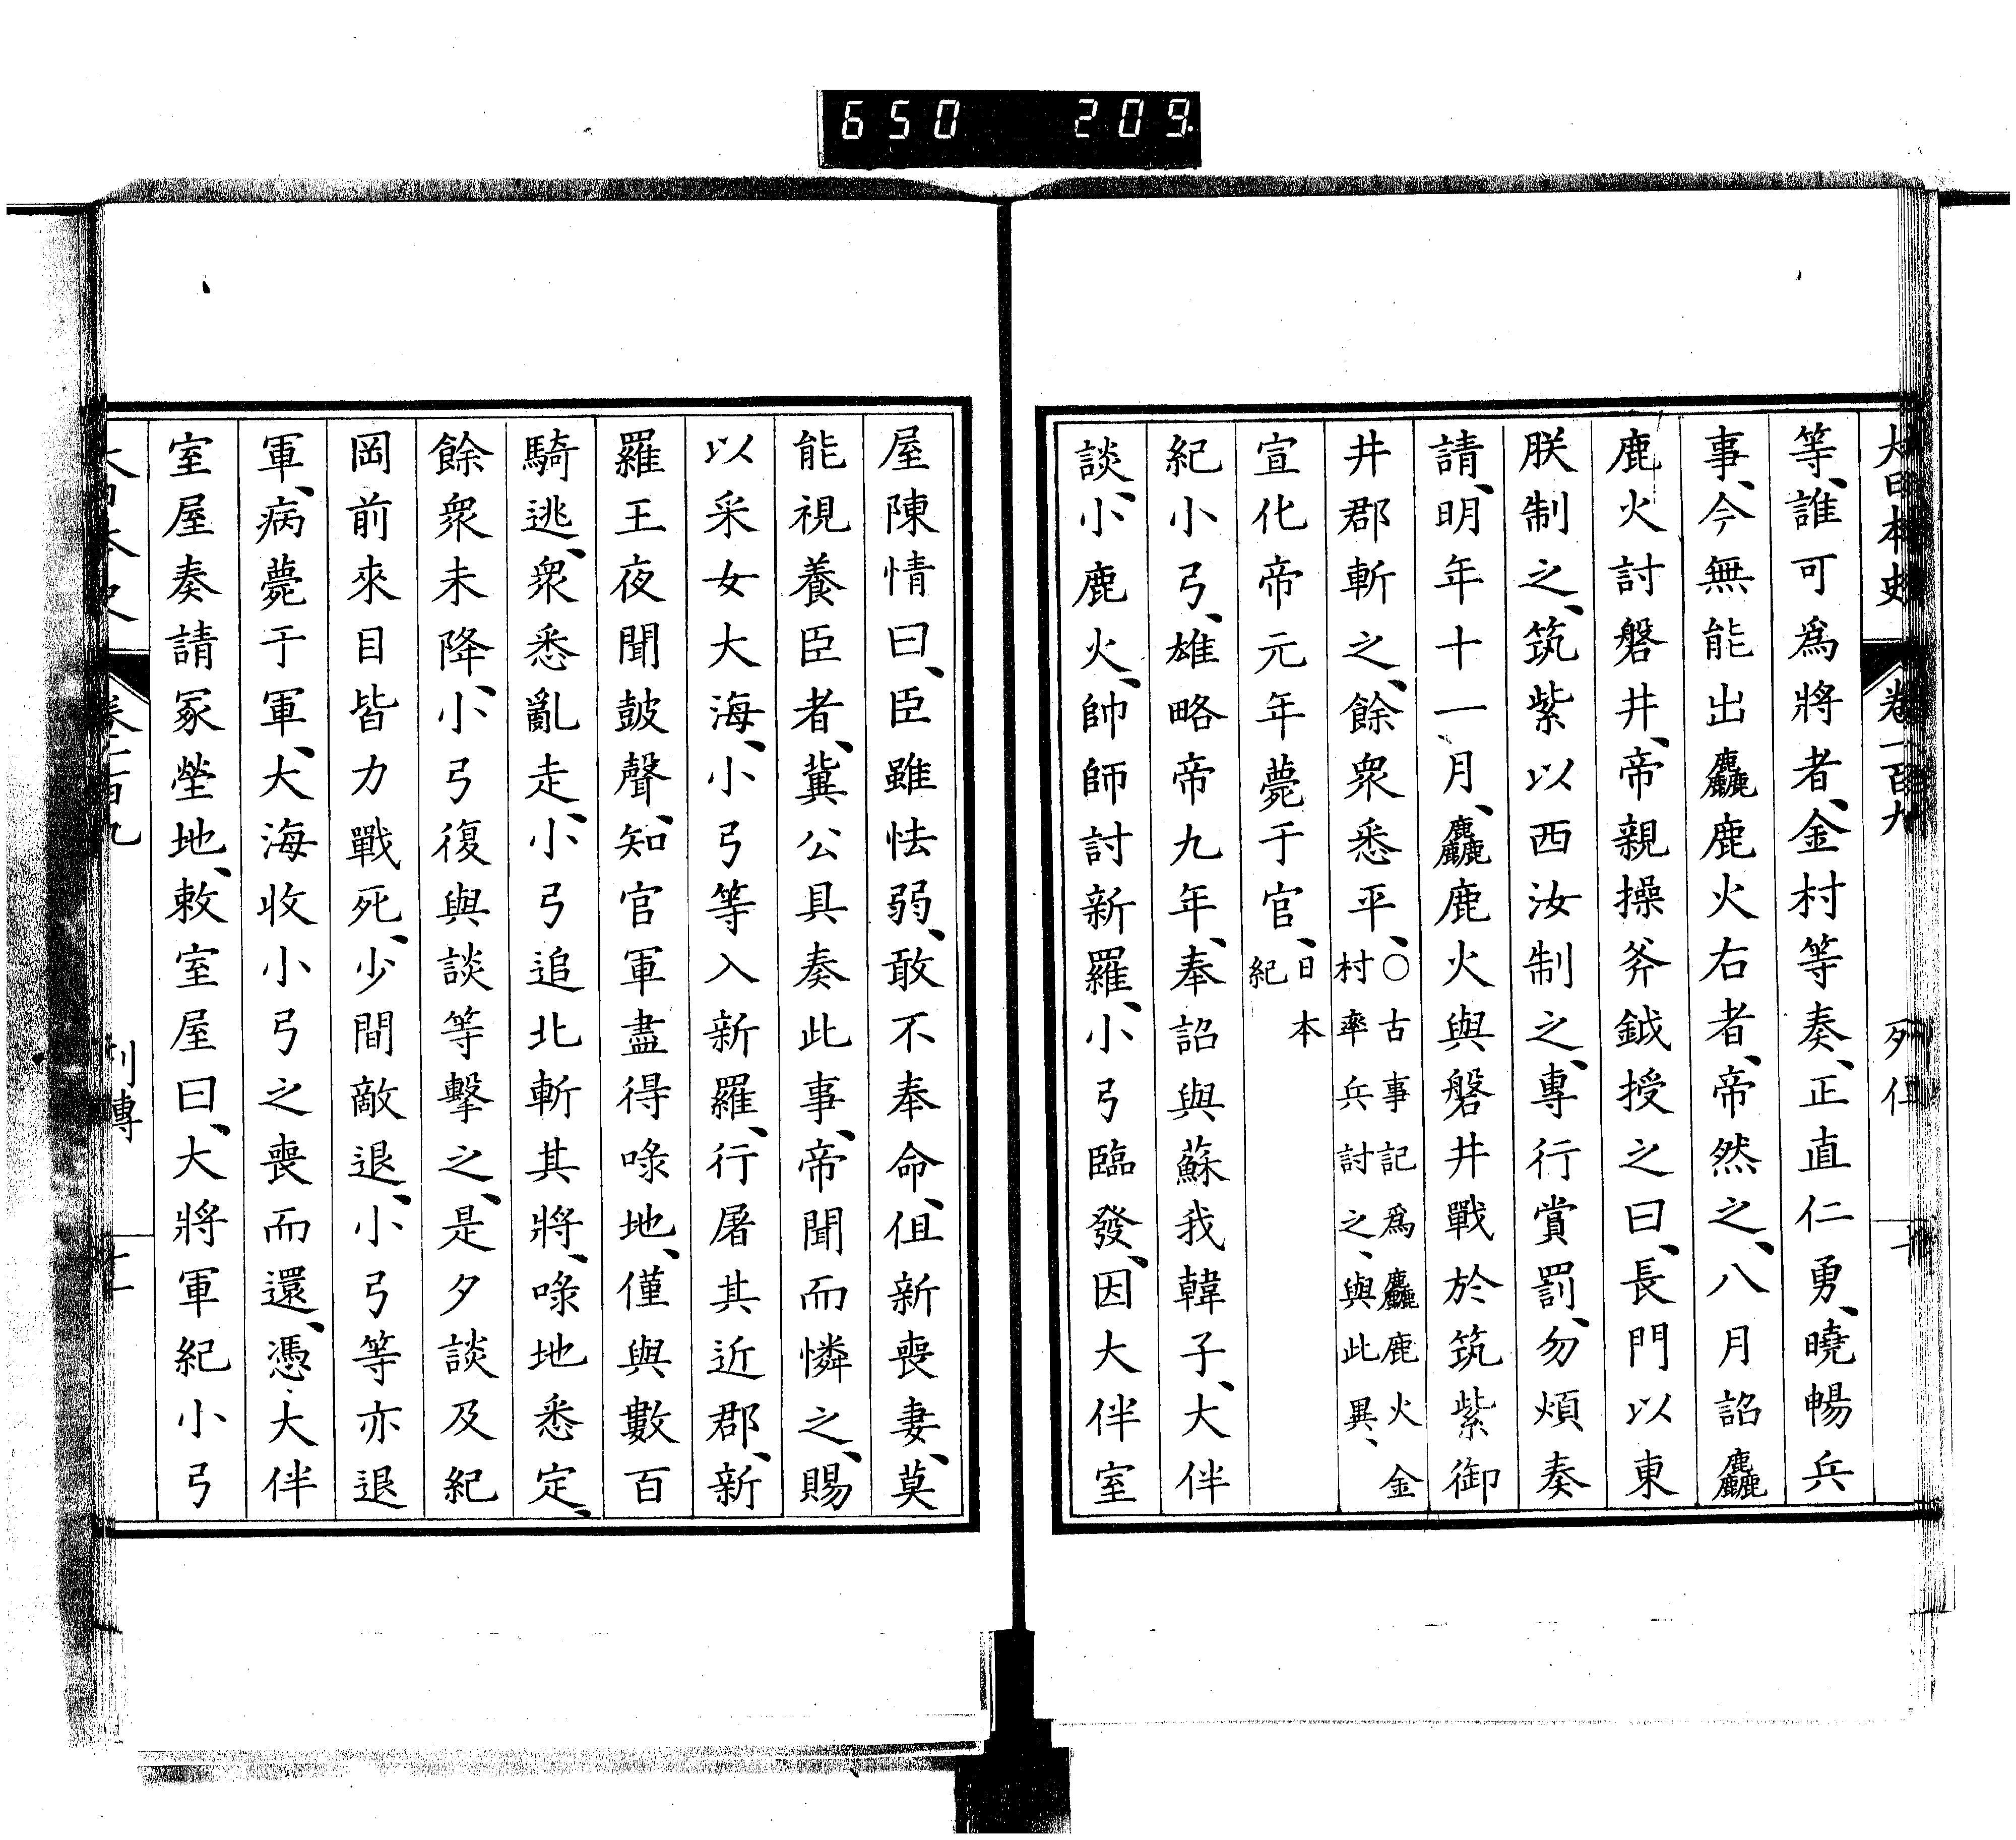 650 209.
大日本史 卷一百九 列傳 十
等、誰可爲將者、金村等奏、正直仁勇、曉暢兵
事、今無能出麤鹿火右者、帝然之、八月詔麤
鹿火討磐井、帝親操斧鉞授之曰、長門以東
朕制之、筑紫以西汝制之、專行賞罰、勿煩奏
請、明年十一月、麤鹿火與磐井戰於筑紫御
井郡斬之、餘衆悉平、〇古事記爲麤鹿火金村率兵討之、與此異、
宣化帝元年薨于官、日本紀
紀小弓、雄略帝九年、奉詔與蘇我韓子、大伴
談、小鹿火、帥師討新羅、小弓臨發、因大伴室
屋陳情曰、臣雖怯弱、敢不奉命、伹新喪妻、莫
能視養臣者、冀公具奏此事、帝聞而憐之、賜
以采女大海、小弓等入新羅、行屠其近郡、新
羅王夜聞鼓聲、知官軍盡得喙地、僅與數百
騎逃、衆悉亂走、小弓追北斬其將、喙地悉定、
餘衆未降、小弓復與談等擊之、是夕談及紀
岡前來目皆力戰死、少間敵退、小弓等亦退
軍、病薨于軍、大海收小弓之喪而還、憑大伴
室屋奏請冢塋地、敕室屋曰、大將軍紀小弓
大日本史 卷一百九 列傳